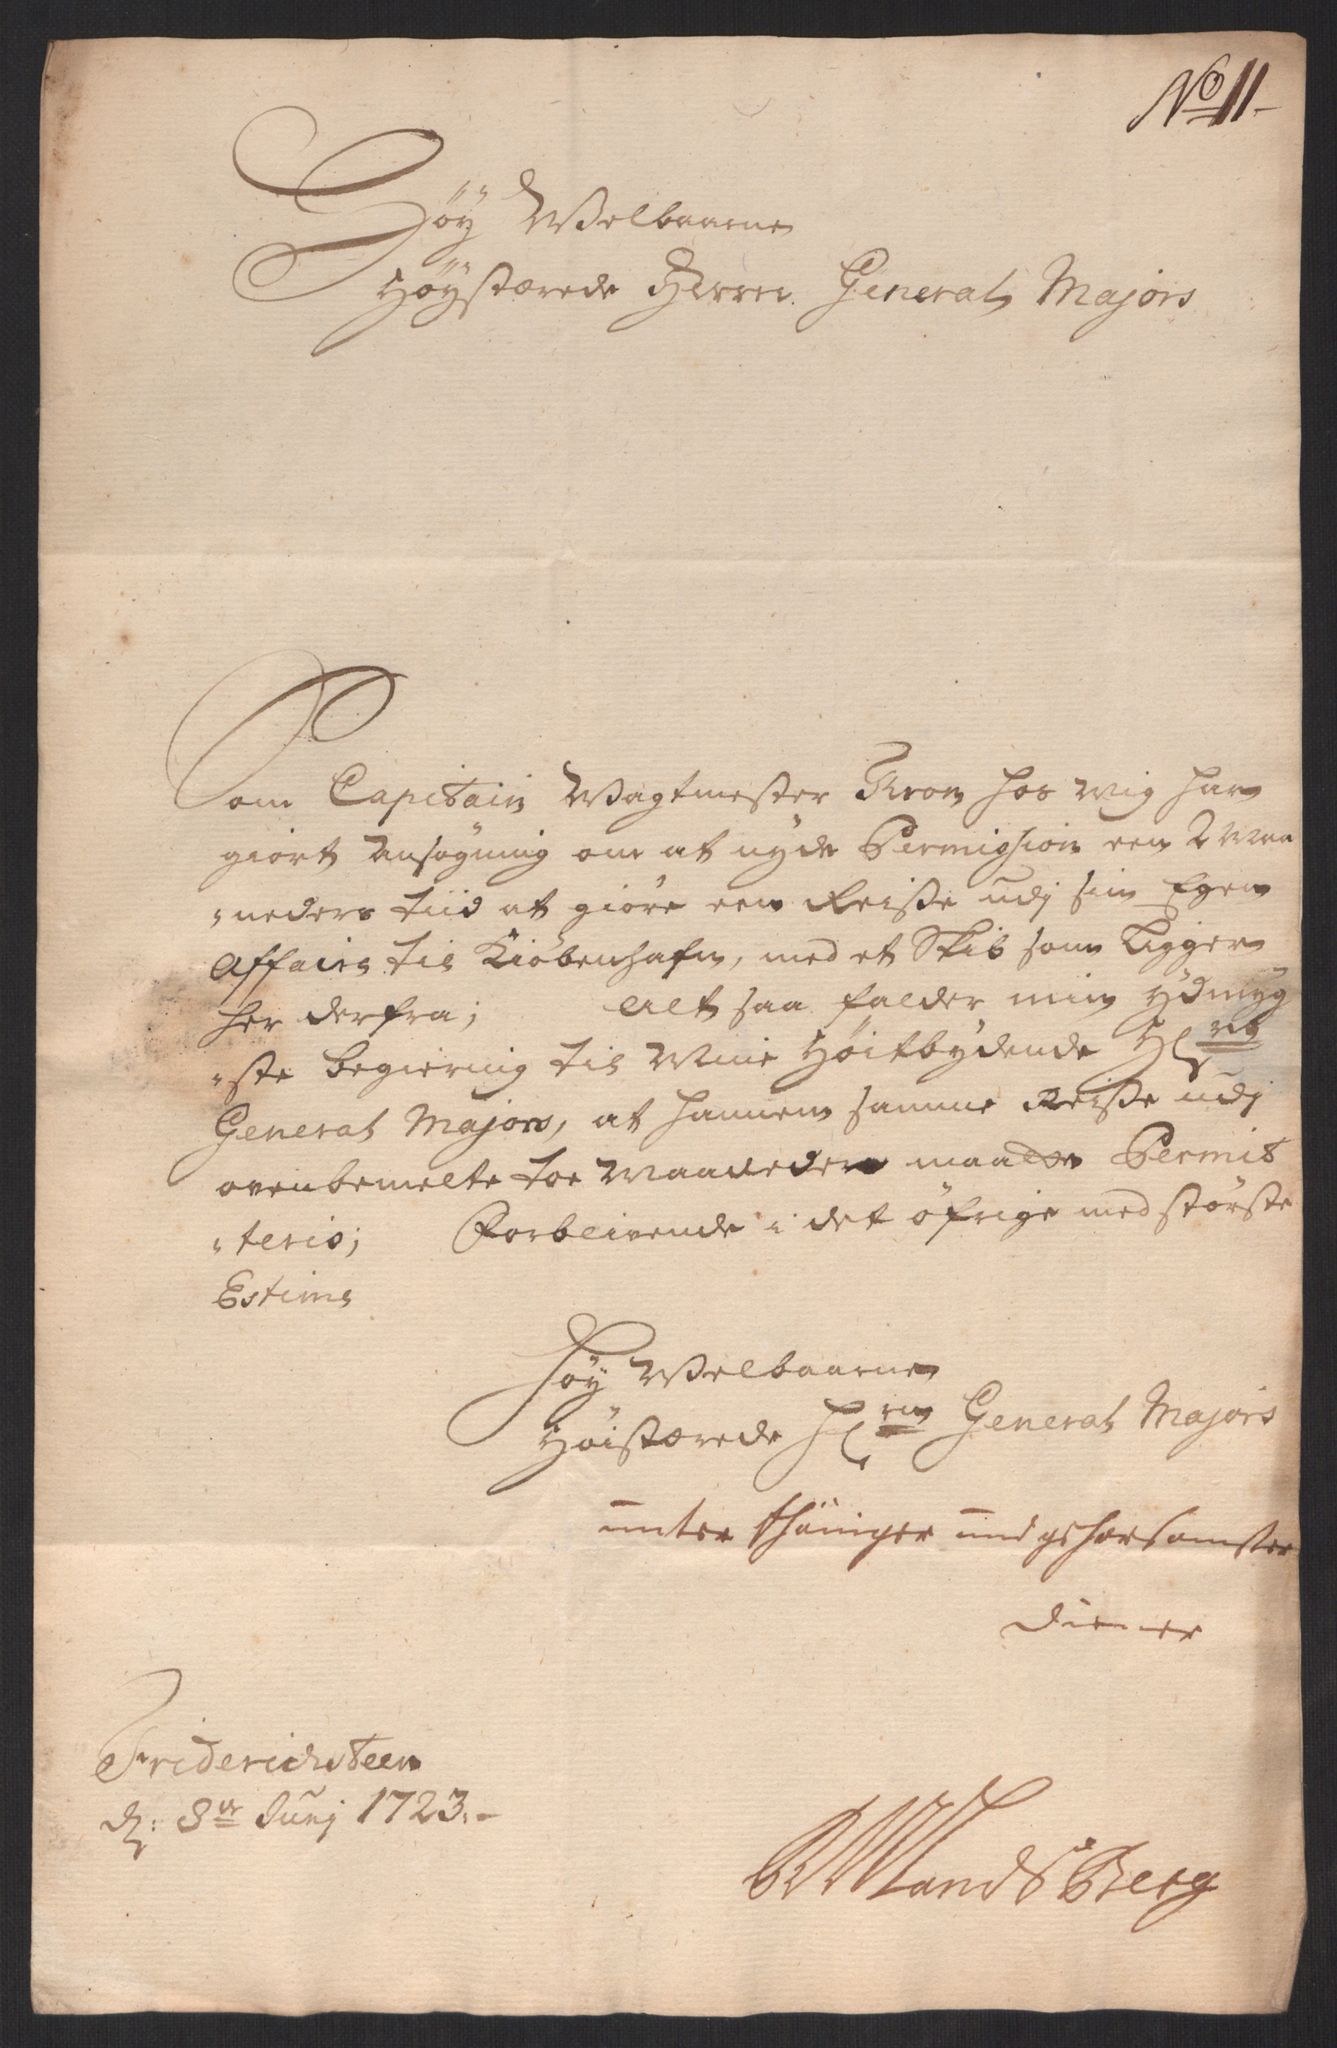 No 11
Höy Welbaarne
Höystærede Herre General Majors
Som Capitain Wagtmester Kron hos mig har
giort Ansögning om at nyde Permission een 2 Maa
neders tiid at giöre een Reise udj sin Egen
Affairs til Kiöbenhafn, med et Skib som Ligger
her derfra; Alt saa falder min ydmyg
ste begiering til Min Höitbydende Hrs
General Majors, at hannem samme Reise udj
ovenbemelte toe Maaneder maa Permit
teris; Forblivende i det öfrige med störste
Estime
Höy Welbaarne
Höistærede Hren General Majors
unterthäniger und gehorsamster
Diener
Friderichsteen
d: 8de Junj 1723.
Landsberg